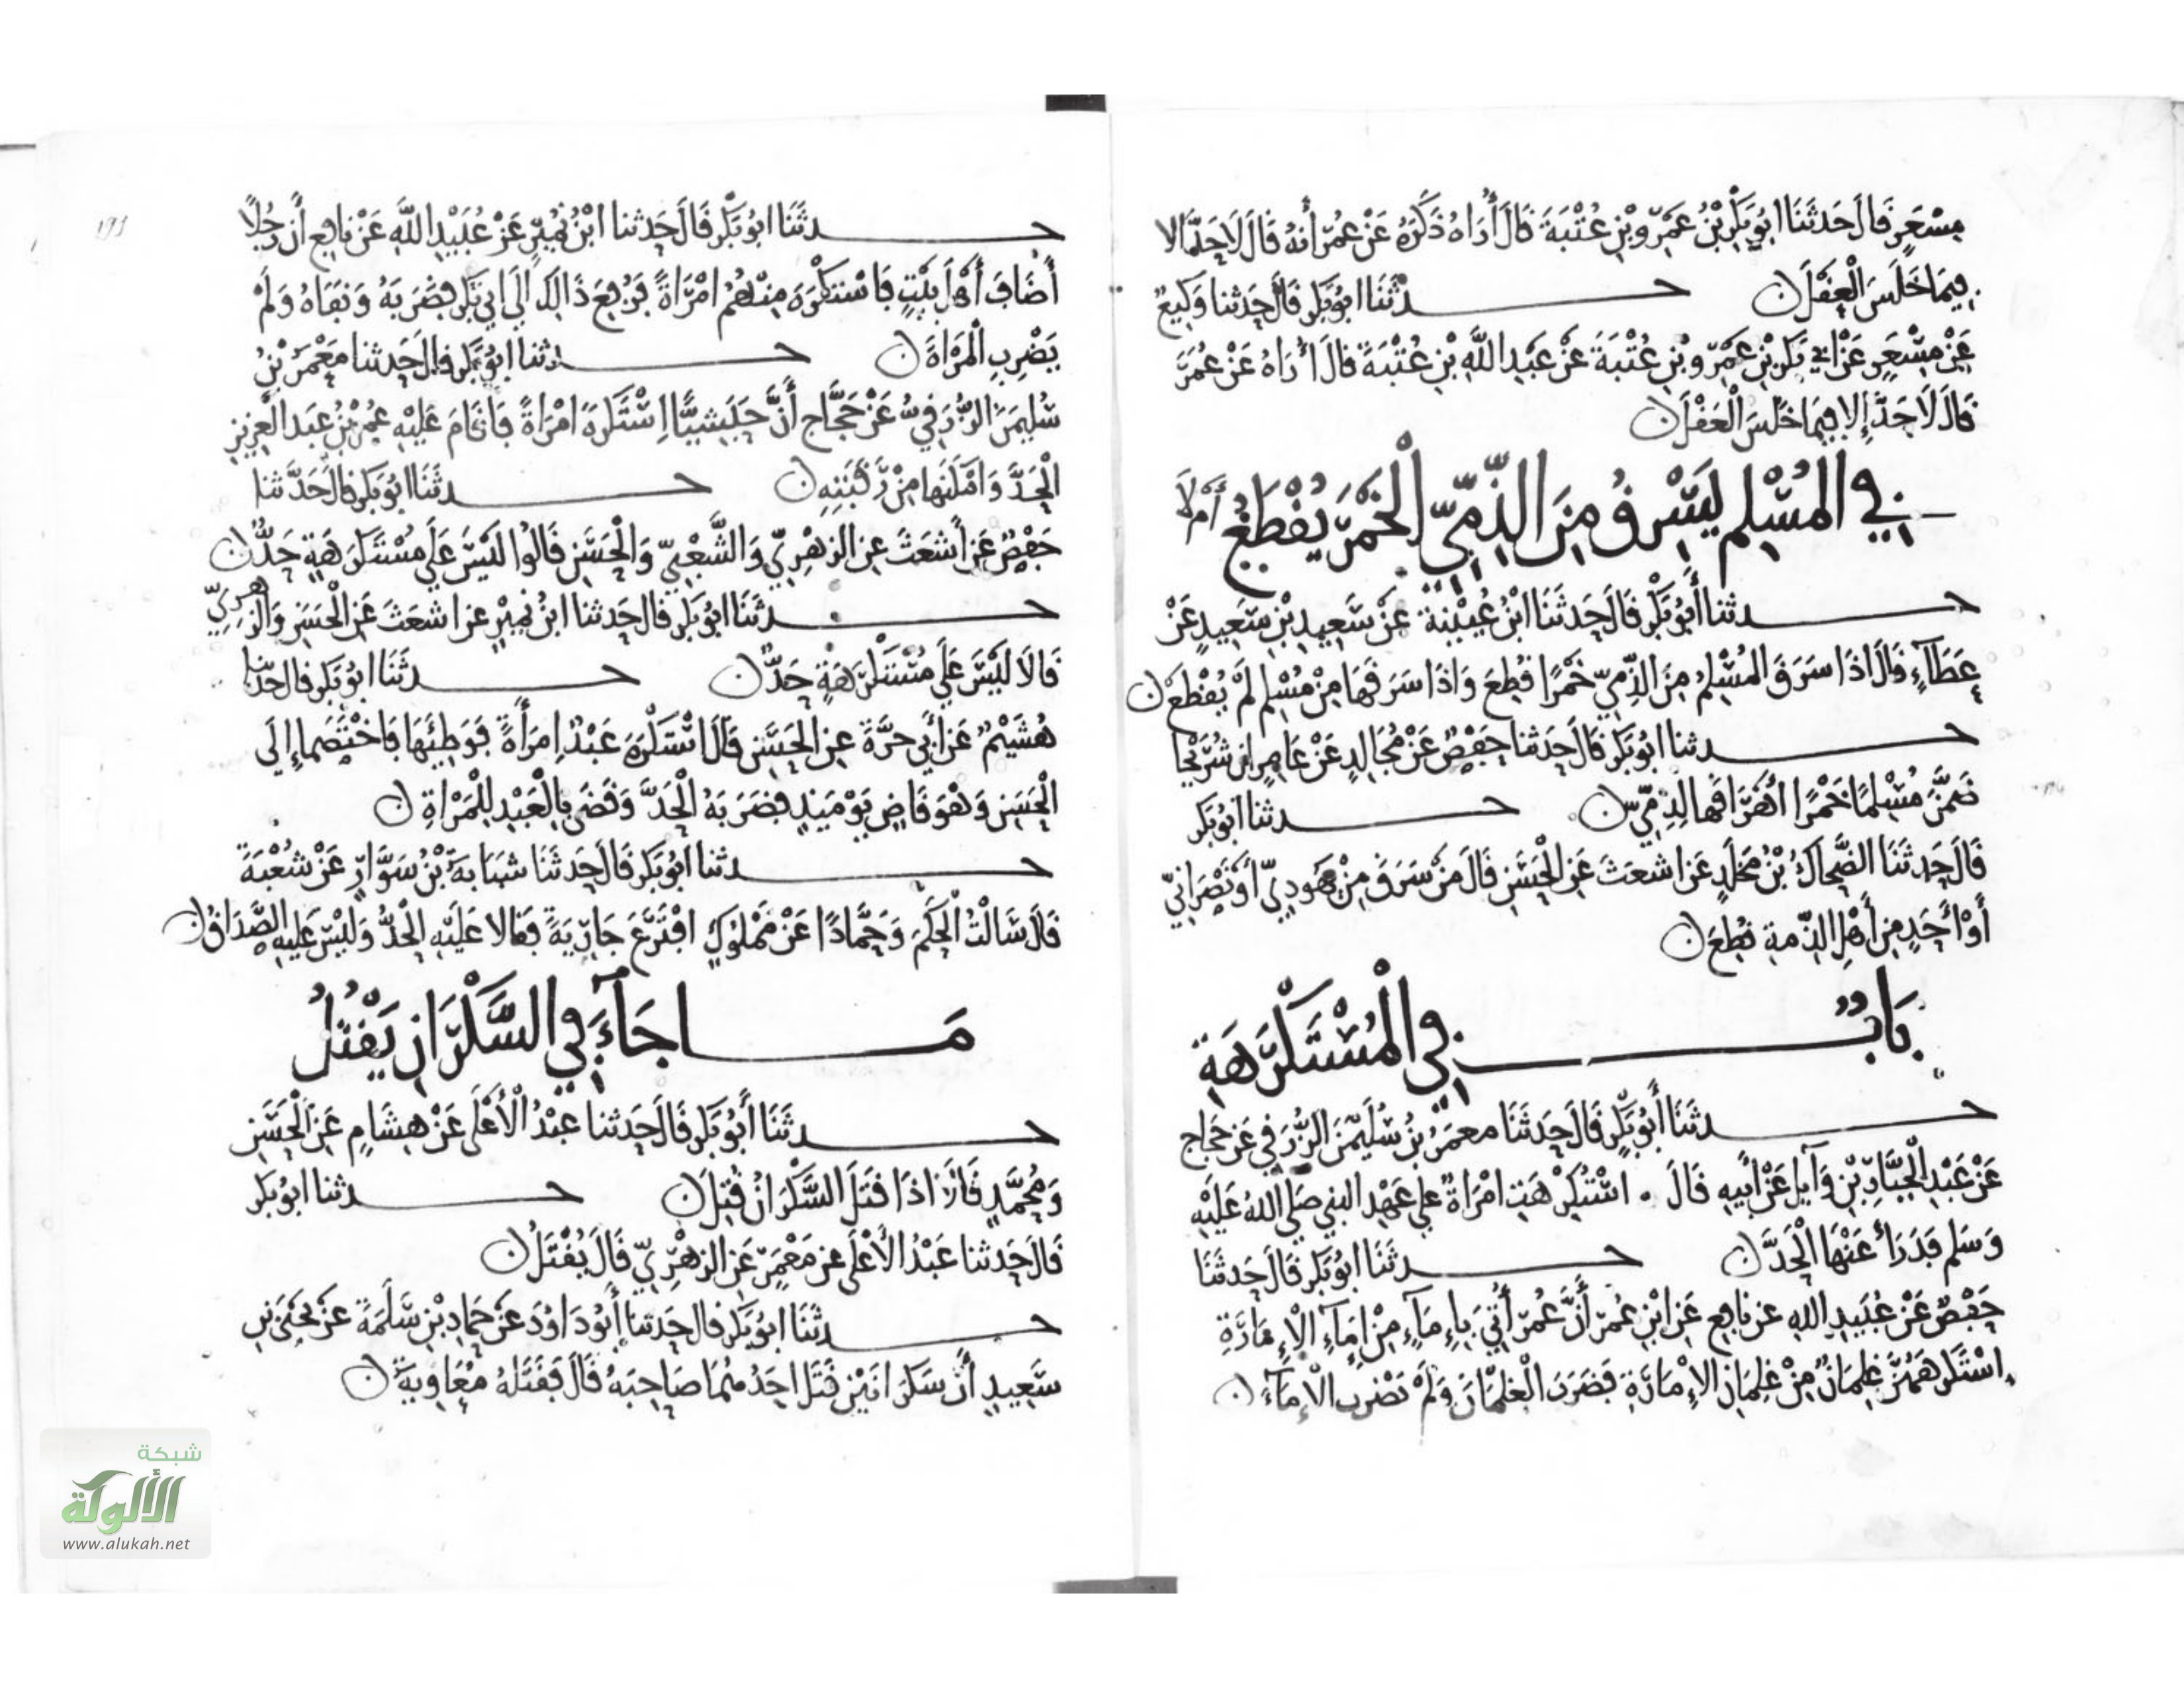 مِسْعَرٍ قَالَ حَدثَنَا ابُو بَكْرِ بْنُ عَمْرِو بْنِ عُتْبَةَ قَالَ أُرَاهُ ذَكَرَهُ عَنْ عُمَرَ أنهُ قَالَ لَا حَدَّ الا
فِيمَا خَلَسَ الْعَقْلَ حدثَنَا ابُو بَكْرٍ قَالَ حَدثنا وَكِيعٌ
عَنْ مِسْعَرٍ عَنْ ابي بَكْرِ بْنِ عَمْرِو بْنِ عُتْبَةَ عَنْ عَبْدِ اللَّهِ بْنِ عُتْبَةَ قَالَ أُرَاهُ عَنْ عُمَرَ
قَالَ لَا حَدَّ إِلا فِيمَا خَلَسَ الْعَقْلَ
فِي الْمُسْلِمِ يَسْرِقُ مِنَ الذِّمِّيِّ الْخَمْرَ يُقْطَعُ أَمْ لَا
حدثنا أَبُو بَكْرٍ قَالَ حَدثَنَا ابْنُ عُيَيْنَةَ عَنْ سَعِيدِ بْنِ سَعِيدٍ عَنْ
عَطَاءٍ قَالَ اذَا سَرَقَ الْمُسْلِمُ مِنَ الذِّمِّيِّ خَمْرًا قُطِعَ وَاذَا سَرَقَهَا مِنْ مُسْلِمٍ لَمْ يُقْطَعْ
حدثنا ابُو بَكْرٍ قَالَ حَدثنا حَفْصٌ عَنْ مُجَالِدٍ عَنْ عَامِرٍ ان شُرَيْحًا
ضَمَّنَ مُسْلِمًا خَمْرًا أَهْرَاقَهَا لِذِمِّيٍّ حدثنا ابُو بَكْرٍ
قَالَ حَدثَنَا الضَّحَّاكُ بْنُ مَخْلَدٍ عَنْ اشعَثَ عَنِ الْحَسَنِ قَالَ مَنْ سَرَقَ مِنْ يَهُودِيٍّ اوْ نَصْرَانِيٍّ
أَوْ أَحَدٍ مِنْ أَهْلِ الذِّمةِ قُطِعَ
بَابٌ فِي الْمُسْتَكْرَهَةِ
حدثَنَا أَبُو بَكْرٍ قَالَ حَدثَنَا معمَرُ بْنُ سُلَيْمَنَ الرَّقِّي عَنْ حَجاج
عَنْ عَبْدِ الْجَبَّارِ بْنِ وَآيِلٍ عَنْ أَبِيهِ قَالَ اسْتُكْرِهَتِ امْرَاةٌ علي عَهْدِ النبي صَلَّى اللهُ عَلَيْهِ
وَسَلم فَدَرَأَ عَنْهَا الْحَدَّ حدثَنَا ابُو بَكْرٍ قَالَ حَدثَنَا
حَفْصٌ عَنْ عُبَيدِ اللهِ عن نافِعٍ عَنِ ابْنِ عُمَرَ أَنَّ عُمَرَ أُتِيَ بِإِمَاءٍ مِنْ إِمَاءِ الْإِمَارَةِ
اسْتَكْرَهَهُنَّ غِلمَانٌ مِنْ غِلمَانِ الإِمَارَةِ فَضَرَبَ الْغِلْمَانَ وَلَمْ يَضْرِبِ الْإِمَاءَ
حدثَنَا ابُو بَكْرٍ قَالَ حَدثنا ابْنُ نُمَيْرٍ عَنْ عُبَيْدِ اللَّهِ عَنْ نافِعٍ أَن رَجُلًا
أَضَافَ أَهْلَ بَيْتٍ فَاسْتَكْرَهَ مِنْهُمُ امْرَاةً فَرُفِعَ ذَالِكَ الَي ابِي بَكْرٍ فَضَرَبَهُ وَنَفَاهُ وَلَمْ
يَضْرِبِ الْمَرْاةَ حدثنا ابُو بَكْرٍ قَالَ حَدثنا مَعْمَرُ بْنُ
سُلَيمَنَ الرَّقِّيُّ عَنْ حَجَّاجٍ أَنَّ حَبَشِيًّا اسْتَكْرَهَ امْرَاةً فَاقَامَ عَلَيْهِ عُمَرُ بْنُ عَبد العَزِيزِ
الْحَدَّ وَامْكَنَهَا مِنْ رَقَبَتِهِ حدثَنَا ابُو بَكْرٍ قَالَ حَدَّثَنا
حَفْصٌ عَنْ أَشعَثَ عنِ الزهْرِيِّ وَالشَّعْبِيِّ وَالْحَسَنِ قَالُوا لَيْسَ عَلَي مُسْتَكْرَهَةٍ حَدٌّ
حدثَنَا ابُو بَكْرٍ قَالَ حَدثنا ابنُ نُمَيْرٍ عن اشعَثَ عَنِ الْحَسَنِ وَالزهرِيِّ
قَالَا لَيْسَ عَلَي مُسْتَكْرَهَةٍ حَدٌّ حدثَنَا ابُو بَكْرٍ قَالَ حَدثنا
هُشَيْمٌ عَنْ أَبِي حرَّةَ عنِ الْحَسَنِ قَالَ اسْتَكْرَهَ عَبْدٌ امرَأَةً فَوَطِئَهَا فَاخْتَصَما إِلَى
الْحَسَنِ وَهُوَ قَاضٍ يَوْمَيِذٍ فَضَرَبَهُ الْحَدَّ وَقَضَى بِالْعَبْدِ لِلْمَرْاةِ
حدثنا ابُو بَكْرٍ قَالَ حَدثَنَا شَبَابةُ بْنُ سَوَّارٍ عَنْ شُعْبَةَ
قَالَ سَالْتُ الْحَكَمَ وَحَمَّادًا عَنْ مَمْلُوكٍ افْتَرَعَ جَارِيَةً فَقَالا عَلَيْهِ الْحَدُّ وَلَيْسَ عَلَيهِ الصَّدَاقُ
مَا جَآءَ فِي السَّكْرَانِ يَقْتُلُ
حدثَنَا أَبُو بَكْرٍ قَالَ حَدثنا عَبْدُ الْأَعْلَى عَنْ هِشَامٍ عَنِ الْحَسَنِ
وَمُحَمَّدٍ قَالَا اذَا قَتَلَ السَّكْرَانُ قُتِلَ حدثنا ابُو بَكْرٍ
قَالَ حَدثنا عَبْدُ الأَعْلَى عن مَعْمَرٍ عَنِ الزهْرِيِّ قَالَ يُقْتَلُ
حدثَنَا ابُو بَكْرٍ قَالَ حَدثنا أَبُو دَاوُدَ عَنْ حَمادِ بْنِ سَلَمَةَ عَنْ يَحْيَى بنِ
سَعِيدٍ أَنَّ سَكْرَانَيْنِ قَتَلَ احَدُهُمَا صَاحِبَهُ قَالَ فَقَتَلَهُ مُعَاوِيَةُ
شبكة
الألوكة
www.alukah.net